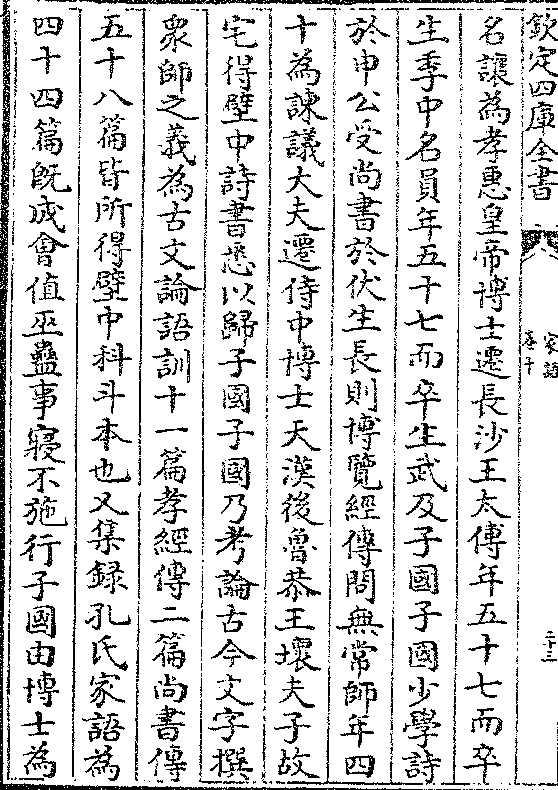 欽定四庫全書
家語
卷十
二十三
名讓為孝惠皇帝博士遷長沙王太傅年五十七而卒
生季中名員年五十七而卒生武及子國子國少學詩
於申公受尚書於伏生長則博覽經傳問無常師年四
十為諫議大夫遷侍中博士天漢後魯恭王壞夫子故
宅得壁中詩書悉以歸子國子國乃考論古今文字撰
衆師之義為古文論語訓十一篇孝經傳二篇尚書傳
五十八篇皆所得壁中科斗本也又集錄孔氏家語為
四十四篇既成會值巫蠱事寢不施行子國由博士為